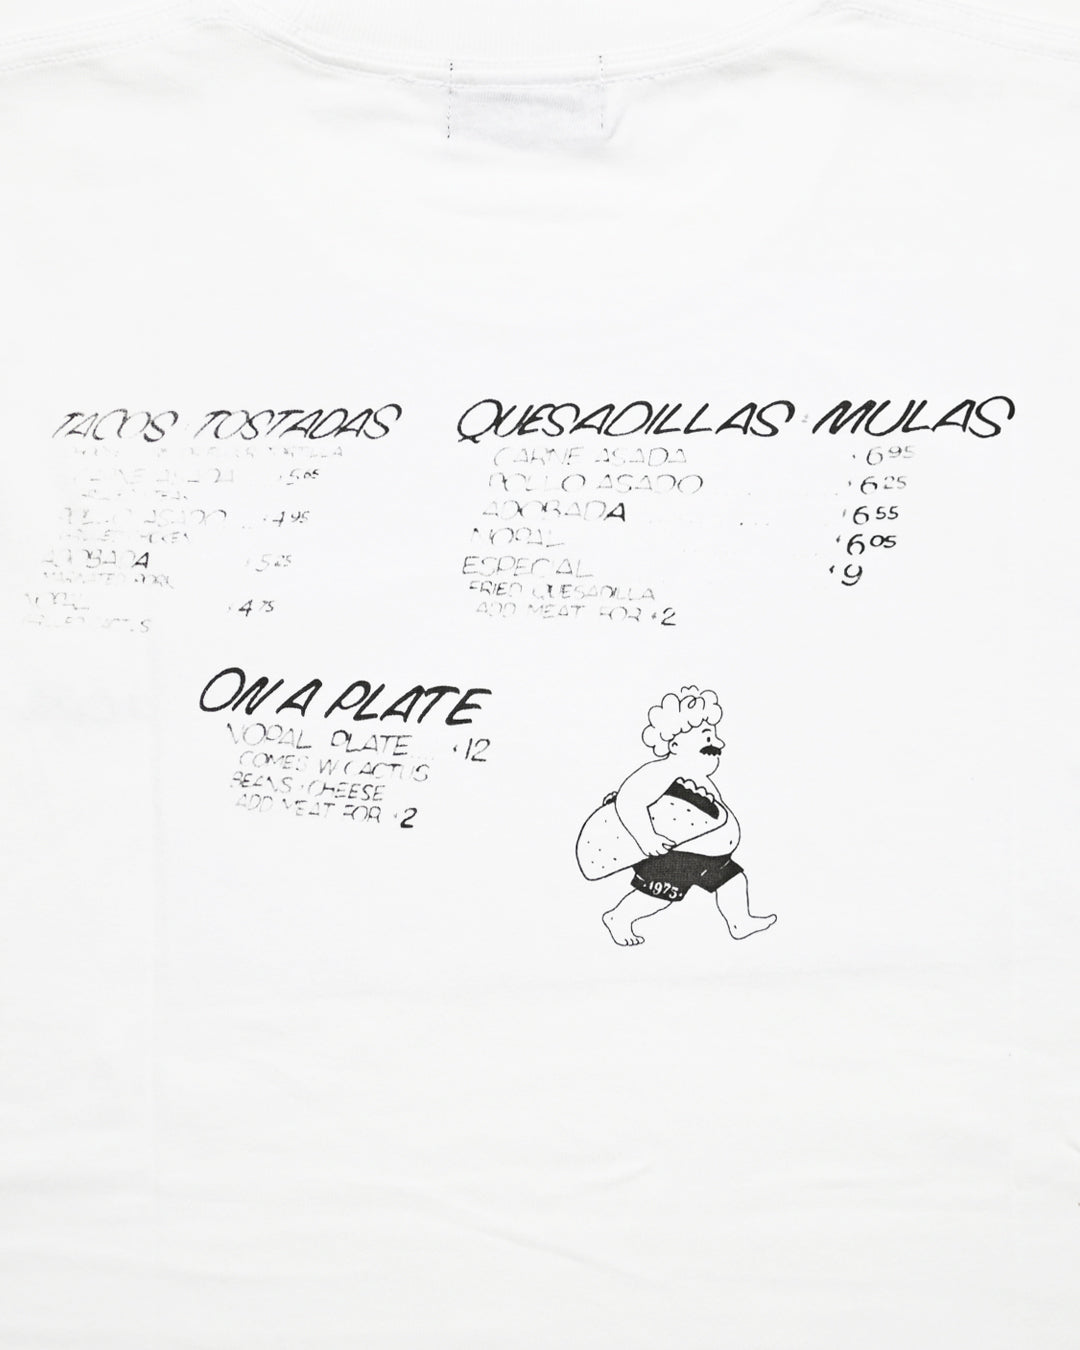 TACOS TOSTADAS
TORTILLA
CARNE ASADA $5.65
POLLO ASADO $4.95
GRILLED CHICKEN
ADOBADA $5.25
MARINATED PORK
NOPAL $4.75
GRILLED CACTUS
QUESADILLAS MULAS
CARNE ASADA $6.95
POLLO ASADO $6.25
ADOBADA $6.55
NOPAL $6.05
ESPECIAL $9
FRIED QUESADILLA
ADD MEAT FOR $2
ON A PLATE
NOPAL PLATE $12
COMES W/ CACTUS
BEANS, CHEESE
ADD MEAT FOR $2
1975